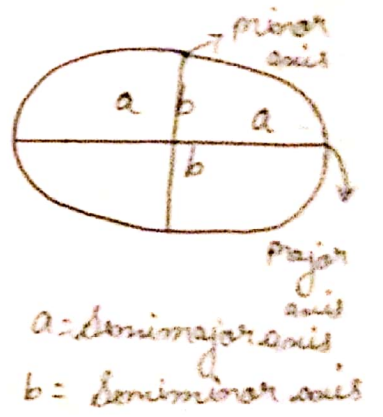 minor
axis
a
b
a
b
major
axis
a = Semimajor axis
b = Semiminor axis